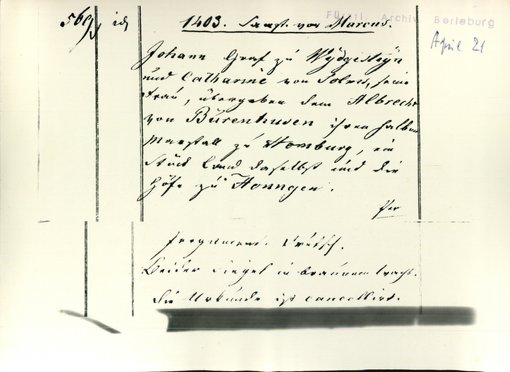 569
1403. Samst. vor Marcus.
Fürstl. Archiv Berleburg
April 21
Johann Graf zu Wydgesteyn
und Catharine von Solms, seine
Frau, übergeben dem Albrecht
von Bürenhusen ihren halben
Marstall zu Homburg, ein
Stück Land daselbst und die
Höfe zu Honngen.
Pergament. Deutsch.
Beider Siegel in braunem Wachs.
Die Urkunde ist cancellirt.